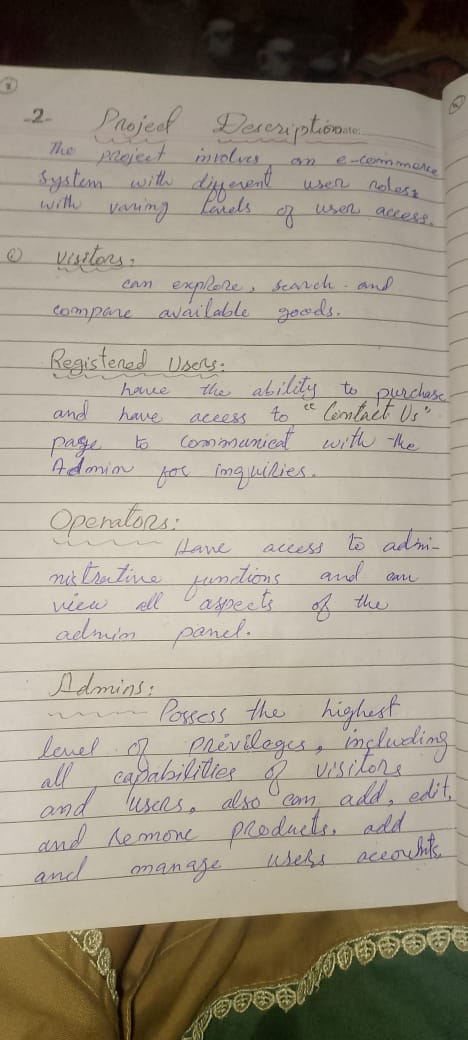 -2- Project Description
The project involves an e-commerce
system with different user roles
with varing levels of user access.
visitors:
can explore, search and
compare available goods.
Registered Users:
have the ability to purchase
and have access to "Contact Us"
page to communicat with the
Admin for inquiries.
Operators:
Have access to admi-
nistrative functions and can
view all aspects of the
admin panel.
Admins:
Possess the highest
level of previleges, including
all capabilities of visitors
and users. also can add, edit,
and remove products. add
and manage users accounts.